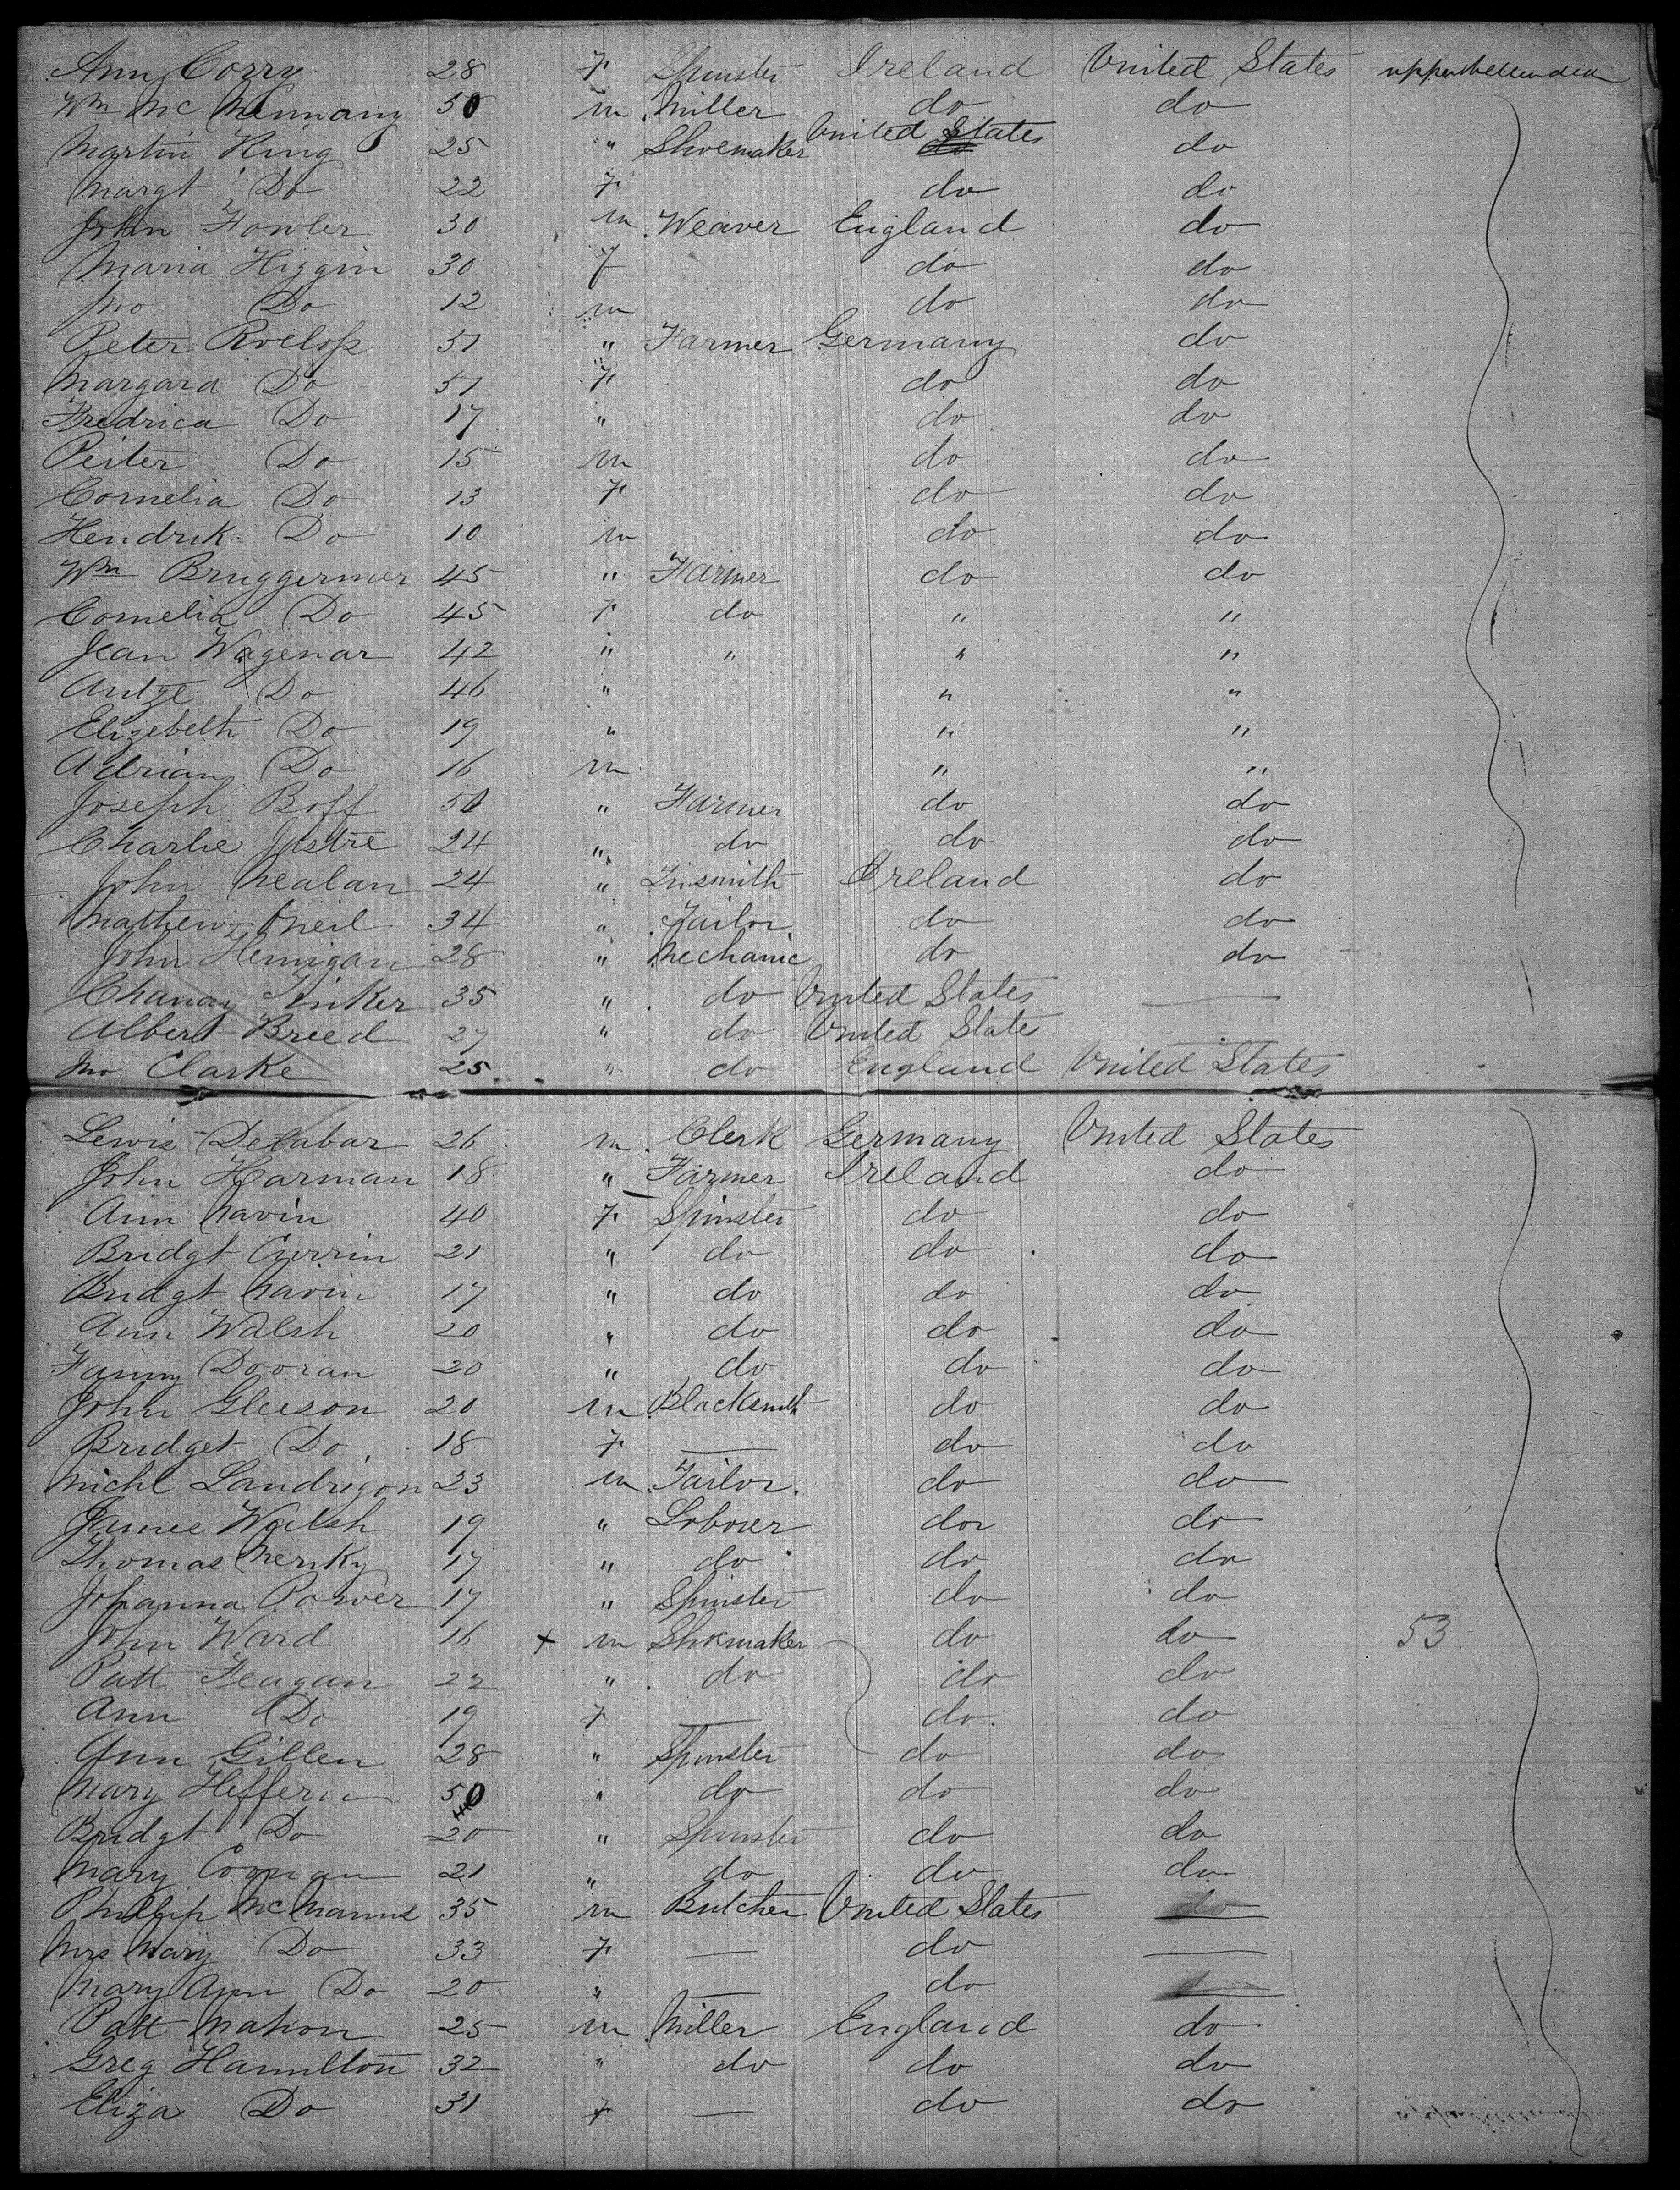 Ann Corry 28 F Spinster Ireland United States upper between decks
Wm Mc 50 m Miller do do
Martin King 25 " Shoemaker United States do
Margt Do 22 F do do
John Fowler 30 m Weaver England do
Maria Higgin 30 F do do
Jno Do 12 m do do
Peter Roelofs 51 " Farmer Germany do
Margara Do 51 F do do
Fredrica Do 17 " do do
Peiter Do 15 m do do
Cornelia Do 13 F do do
Hendrik Do 10 m do do
Wm Bruggermer 45 " Farmer do do
Cornelia Do 45 F do " "
Jean Wagenar 42 " " " "
Antze Do 46 " " "
Elizebeth Do 19 " " "
Adrian Do 16 m " "
Joseph Boff 51 " Farmer do do
Charlie Justre 24 " do do do
John Nealan 24 " Tinsmith Ireland do
Mathew Oneil 34 " Tailor do do
John Hennigan 28 " Mechanic do do
Chancy Tinker 35 " do United States
Albert Breed 27 " do United State
Jno Clarke 25 " do England United States
Lewis Delabar 26 m Clerk Germany United States
John Harman 18 " Farmer Ireland do
Ann Navin 40 F Spinster do do
Bridgt 21 " do do do
Bridgt Navin 17 " do do do
Ann Walsh 20 " do do do
Fanny Dooran 20 " do do do
John Gleeson 20 m Blacksmith do do
Bridget Do 18 F do do
Michl Landrigon 23 m Tailor do do
James Walsh 19 " Laborer do do
Thomas 17 " do do do
Johanna Power 17 " Spinster do do
John Ward 16 x m Shoemaker do do 53
Patt Feagan 22 " do do do
Ann Do 19 F do do
Ann Gillen 28 " Spinster do do
Mary Heffern 50 " do do do
Bridgt Do 20 " Spinster do do
Mary 21 " do do do
Phillip McManus 35 m Butcher United States do
Mrs Mary Do 33 F do
Mary Ann Do 20 " do
Patt Mahon 25 m Miller England do
Greg Hamilton 32 " do do do
Eliza Do 31 F do do